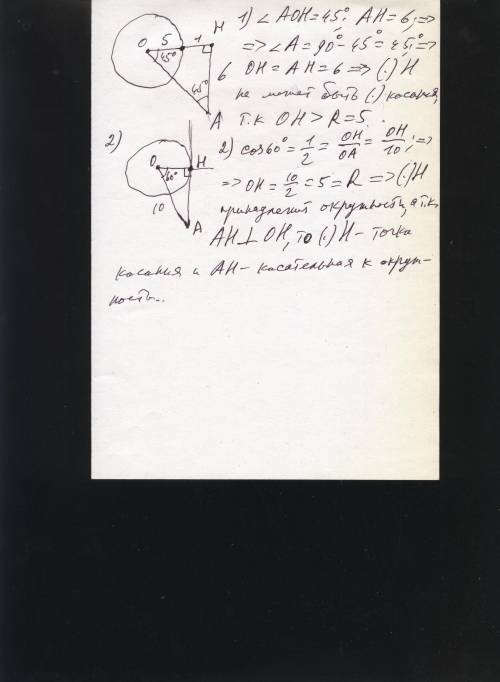 1) ∠ AOH = 45°; AH = 6; =>
=> ∠A = 90° - 45° = 45°; =>
OH = AH = 6 => (·) H
не может быть (·) касания,
т.к OH > R = 5.
O 5 1 H
45°
6
45°
A
2)
O H
60°
10
A
2) cos 60° = 1/2 = OH/OA = OH/10; =>
=> OH = 10/2 = 5 = R => (·) H
принадлежит окружности, а т.к.
AH ⊥ OH, то (·) H - точка
касания и AH - касательная к окруж-
ности..